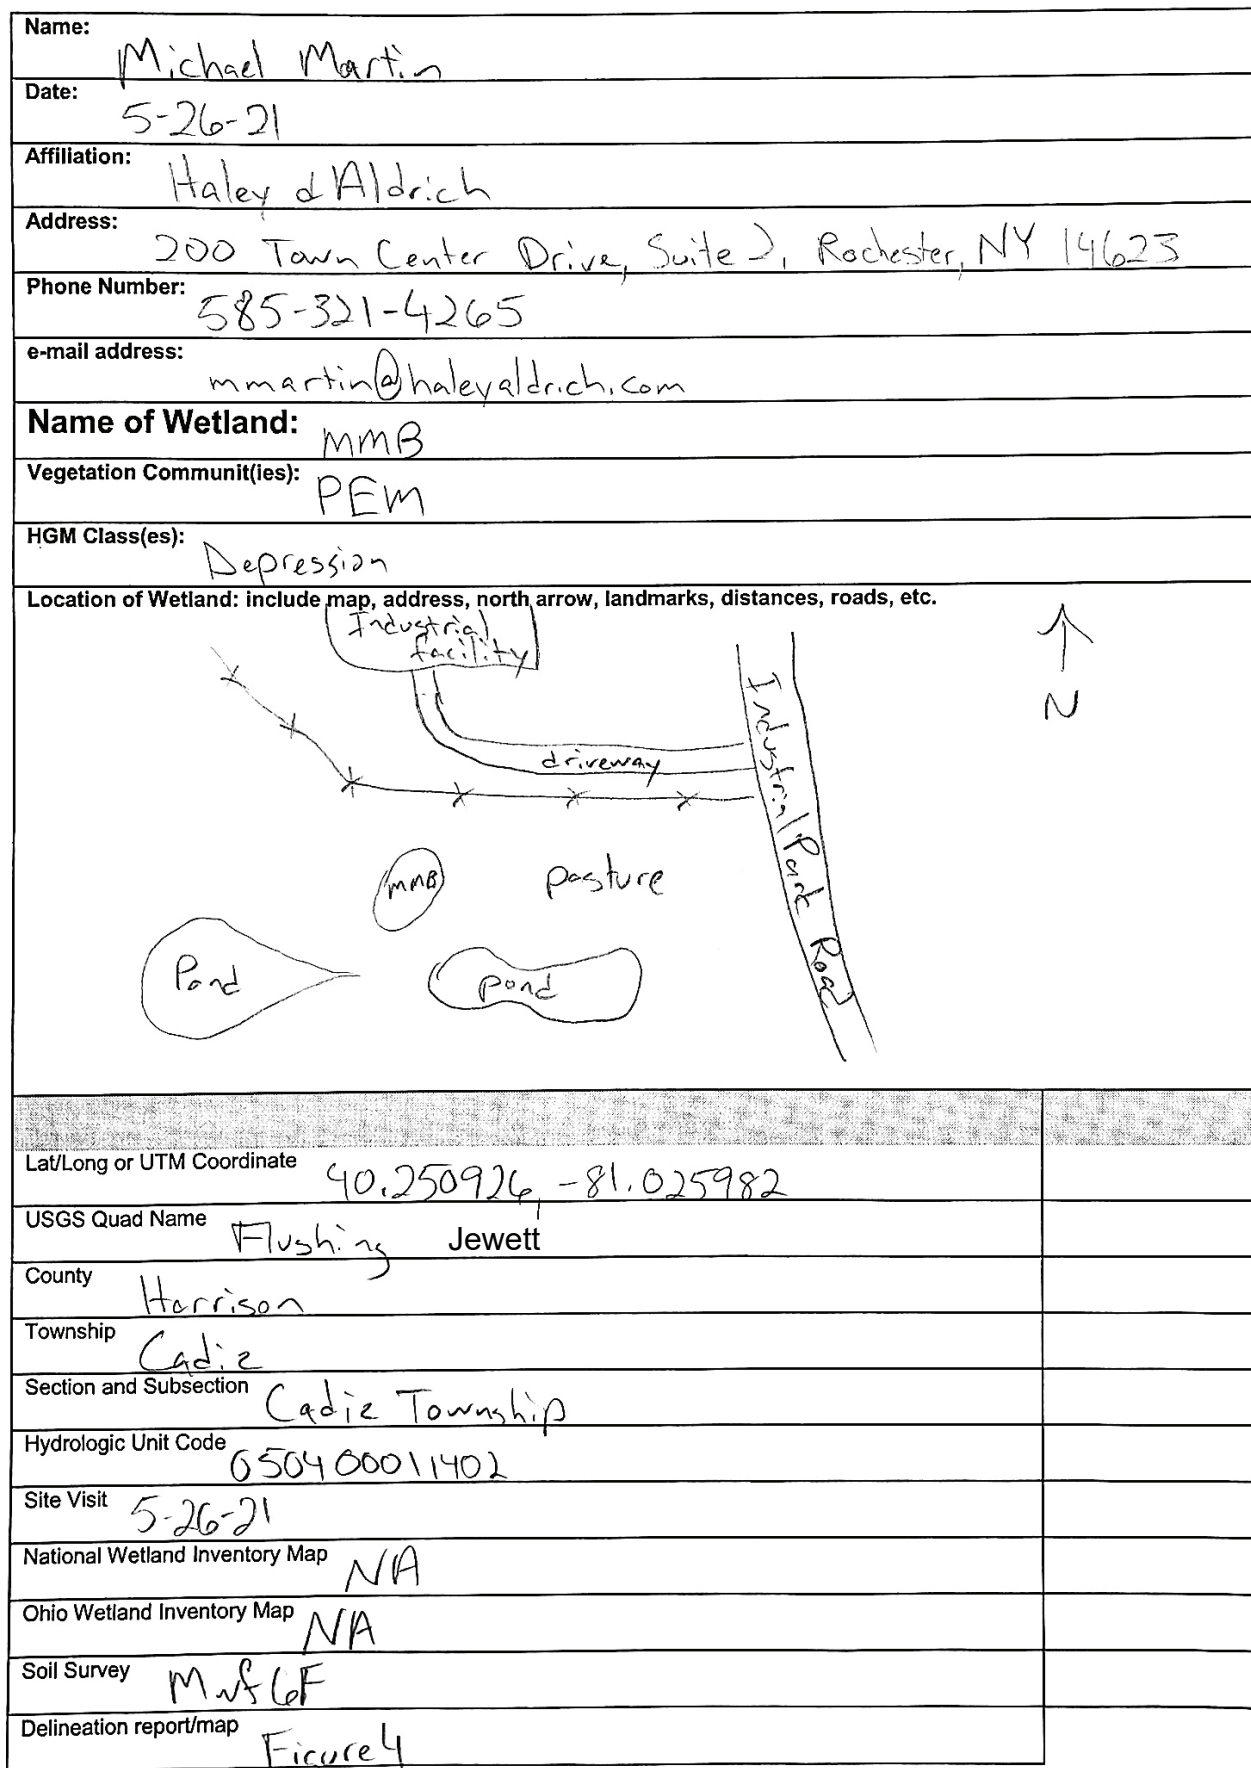 Name:
Michael Martin
Date:
5-26-21
Affiliation:
Haley & Aldrich
Address:
200 Town Center Drive, Suite 2, Rochester, NY 14623
Phone Number:
585-321-4265
e-mail address:
mmartin@haleyaldrich.com
Name of Wetland:
MMB
Vegetation Communit(ies):
PEM
HGM Class(es):
Depression
Location of Wetland: include map, address, north arrow, landmarks, distances, roads, etc.
Industrial
facility
N
driveway
Industrial Park Road
MMB
pasture
Pond
pond
Lat/Long or UTM Coordinate
40.250926, -81.025982
USGS Quad Name
Flushing Jewett
County
Harrison
Township
Cadiz
Section and Subsection
Cadiz Township
Hydrologic Unit Code
050400011402
Site Visit
5-26-21
National Wetland Inventory Map
NA
Ohio Wetland Inventory Map
NA
Soil Survey
Delineation report/map
Figure 4